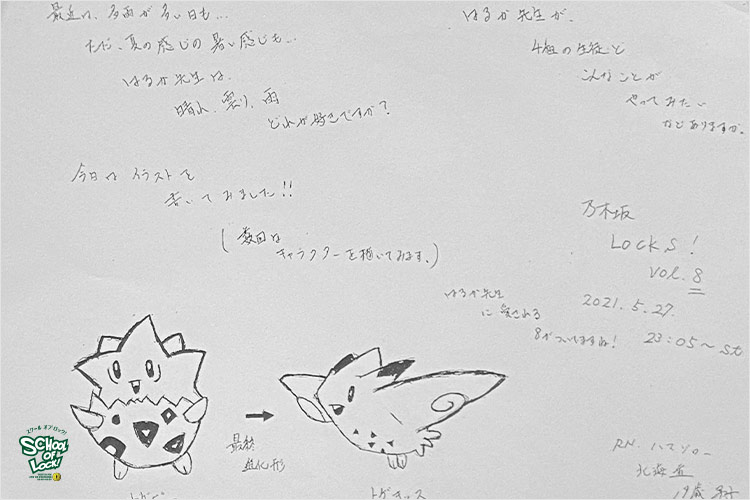 最近は、多雨が多い日も…
ただ、夏の感じの暑い感じも…
はるか先生は、
晴れ、曇り、雨
どれが好きですか?
今日はイラストを
書いてみました!!
(数回は
キャラクターを描いてみます。)
はるか先生が、
4組の生徒と
こんなことが
やってみたい
などありますか。
乃木坂
LOCKS!
VOL.8
2021.5.27.
23:05〜st
はるか先生
に愛される
8がついてますね!
最終
進化形
トゲピー
トゲキッス
スクール オブ ロック!
SCHOOL
OF
LOCK!
RN.
北海道
19歳